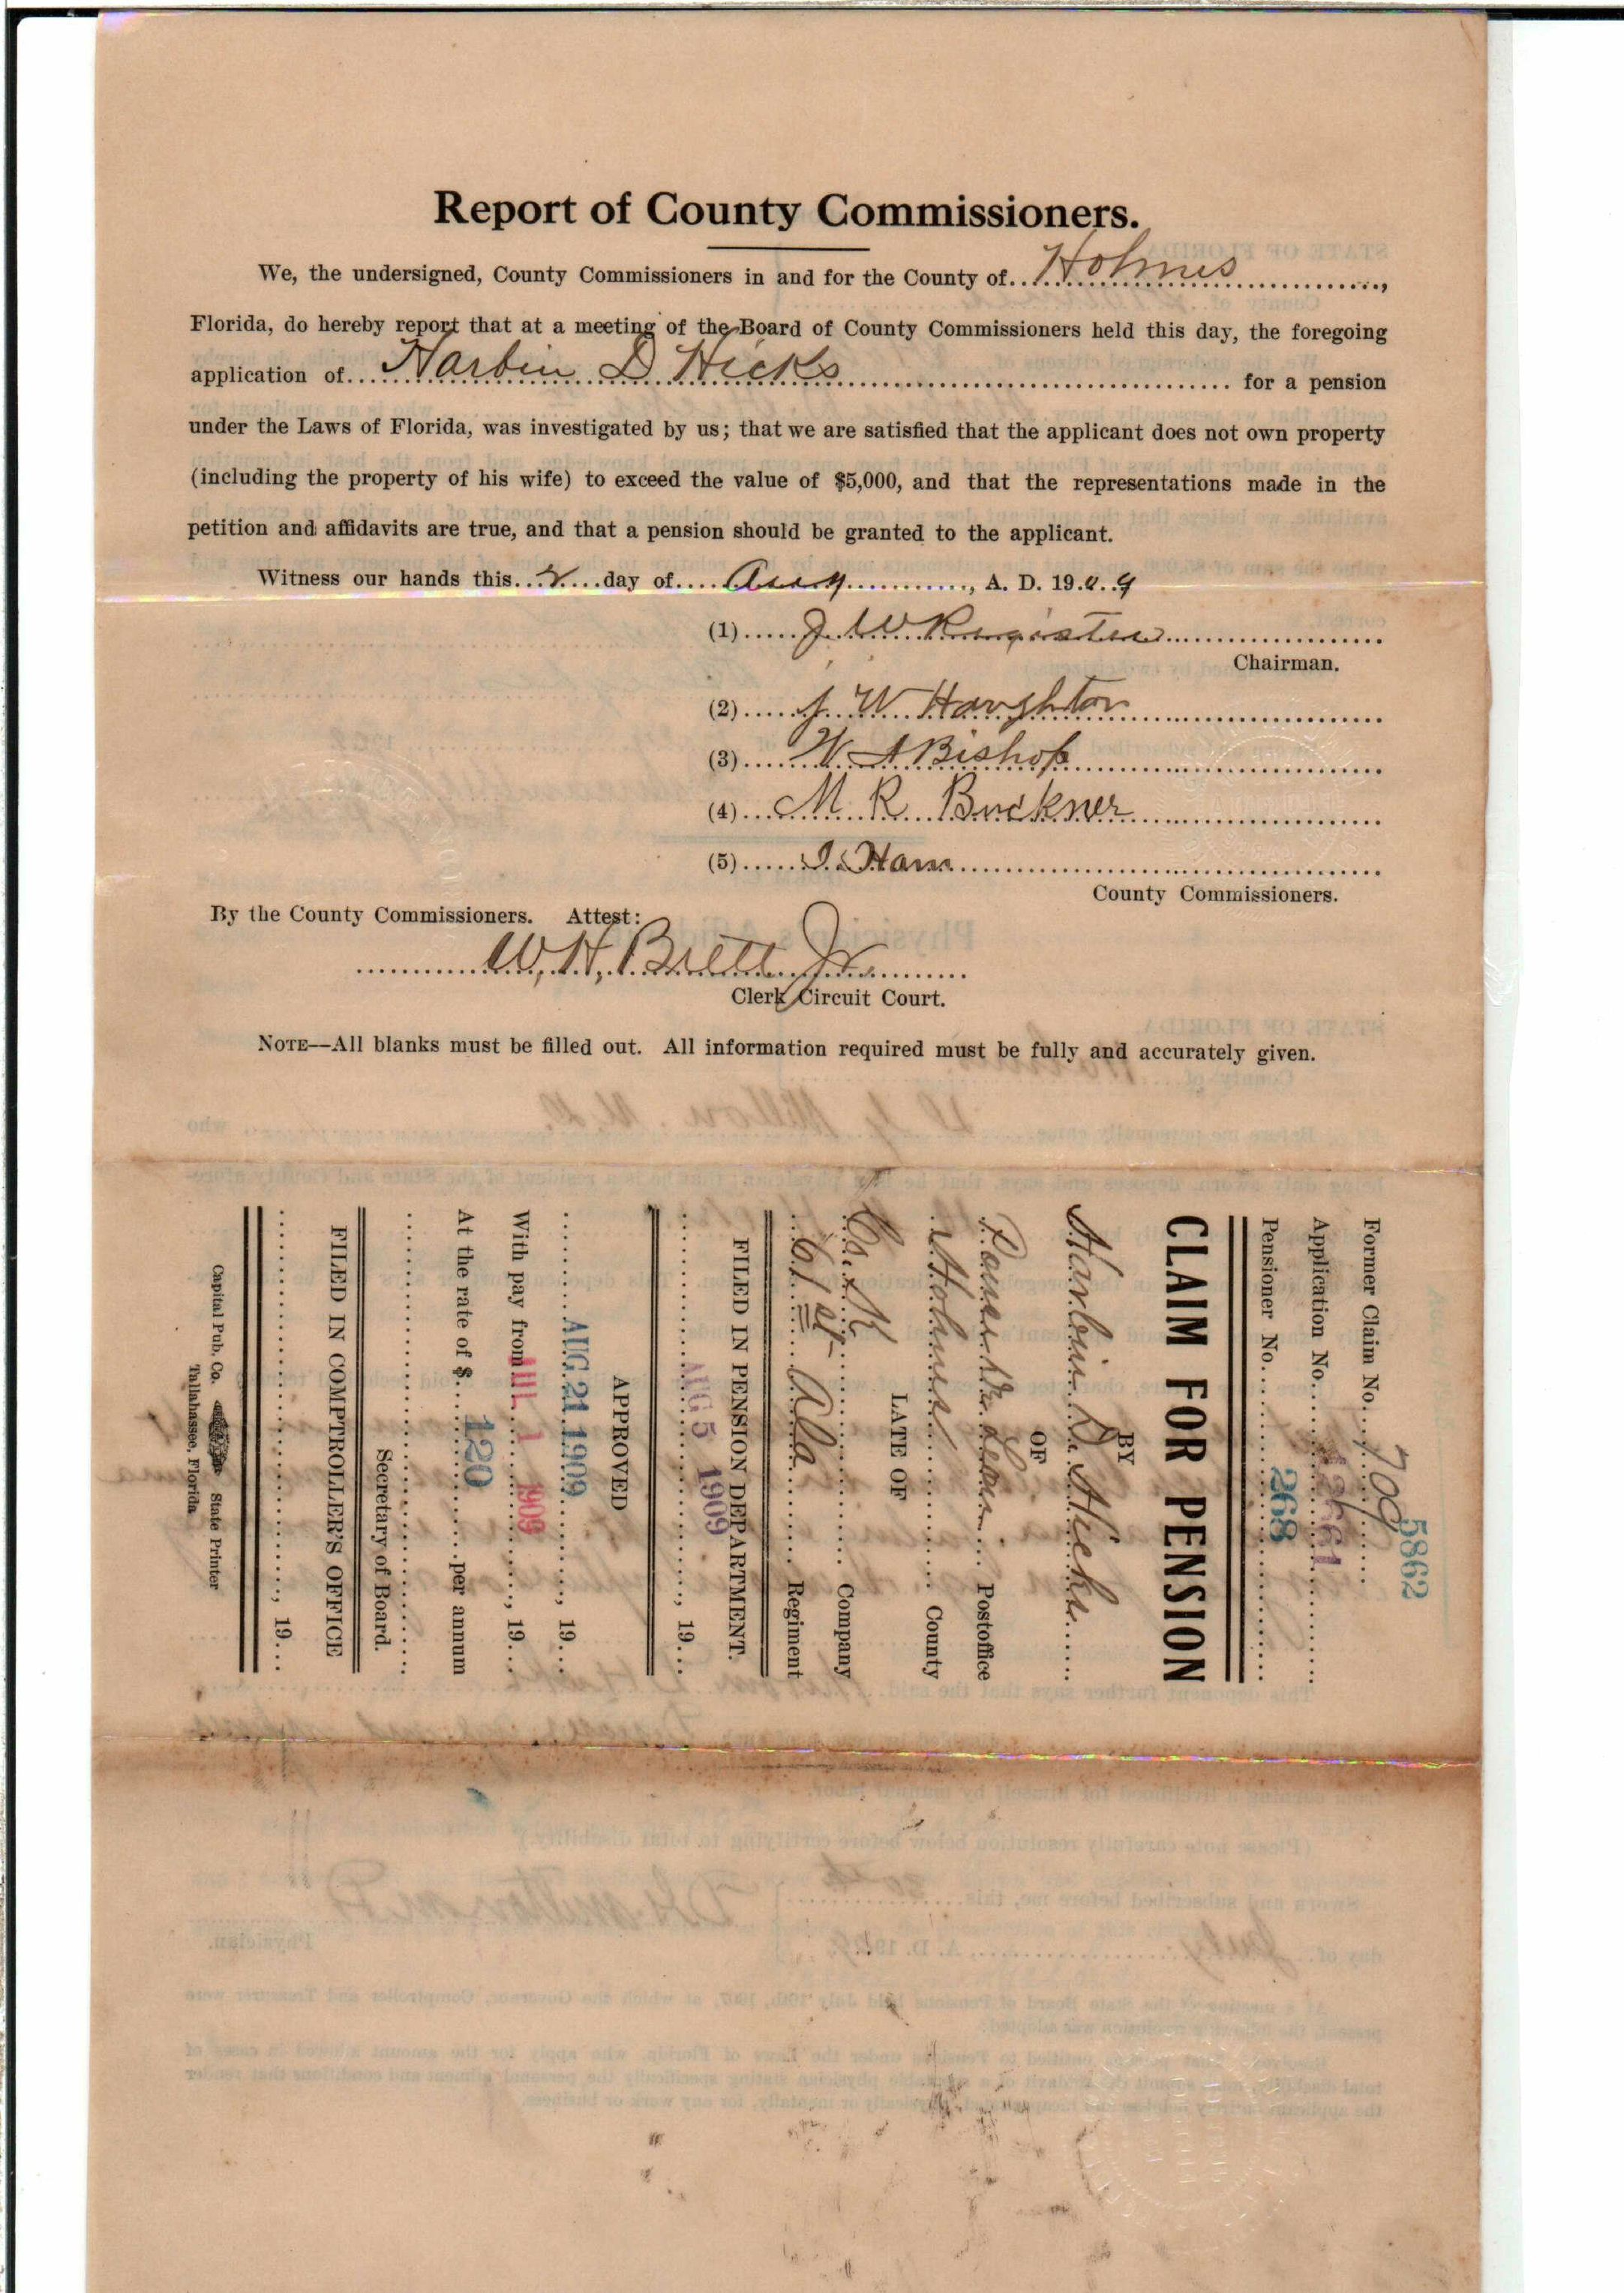 Report of County Commissioners.
We, the undersigned, County Commissioners in and for the County of Holmes,
Florida, do hereby report that at a meeting of the Board of County Commissioners held this day, the foregoing
application of Harbin D Hicks for a pension
under the Laws of Florida, was investigated by us; that we are satisfied that the applicant does not own property
(including the property of his wife) to exceed the value of $5,000, and that the representations made in the
petition and affidavits are true, and that a pension should be granted to the applicant.
Witness our hands this 2 day of Aug, A. D. 1909
(1) J W Register
Chairman.
(2) J W Haughton
(3) W A Bishop
(4) M R Buckner
(5) I. Ham
County Commissioners.
By the County Commissioners. Attest:
W, H, Brett Jr
Clerk Circuit Court.
NOTE—All blanks must be filled out. All information required must be fully and accurately given.
5862
Former Claim No. 709
Application No.
Pensioner No. 268
CLAIM FOR PENSION
BY
Harbin D. Hicks
OF
Postoffice
Holmes County
LATE OF
Co. K Company
61st Ala Regiment
FILED IN PENSION DEPARTMENT.
AUG 5 1909, 19
APPROVED
AUG 21 1909, 19
With pay from JUL 1 1909, 19
At the rate of $ 120 per annum
Secretary of Board.
FILED IN COMPTROLLER'S OFFICE
, 19
Capital Pub. Co. State Printer
Tallahassee, Florida